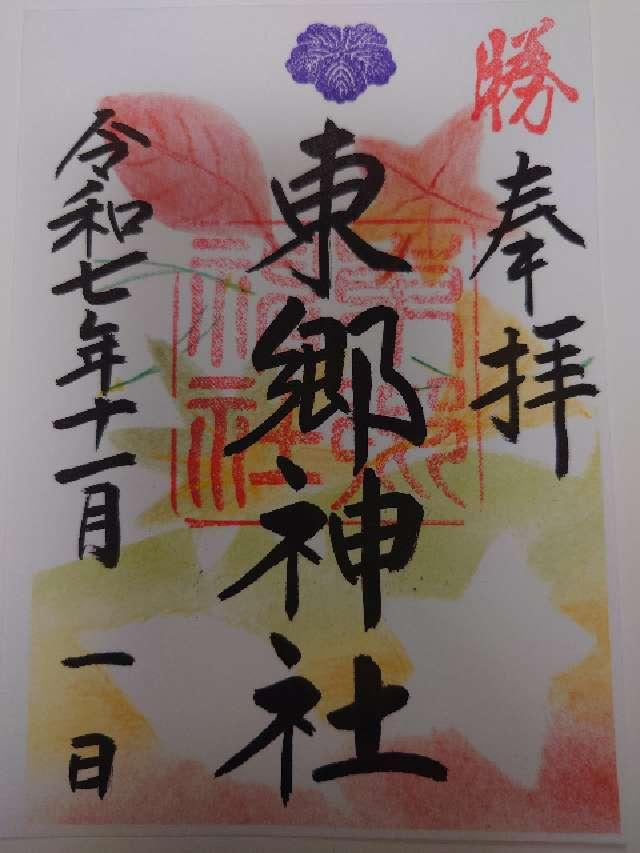 勝
奉拝
東郷神社
東郷神社
令和七年十一月一日